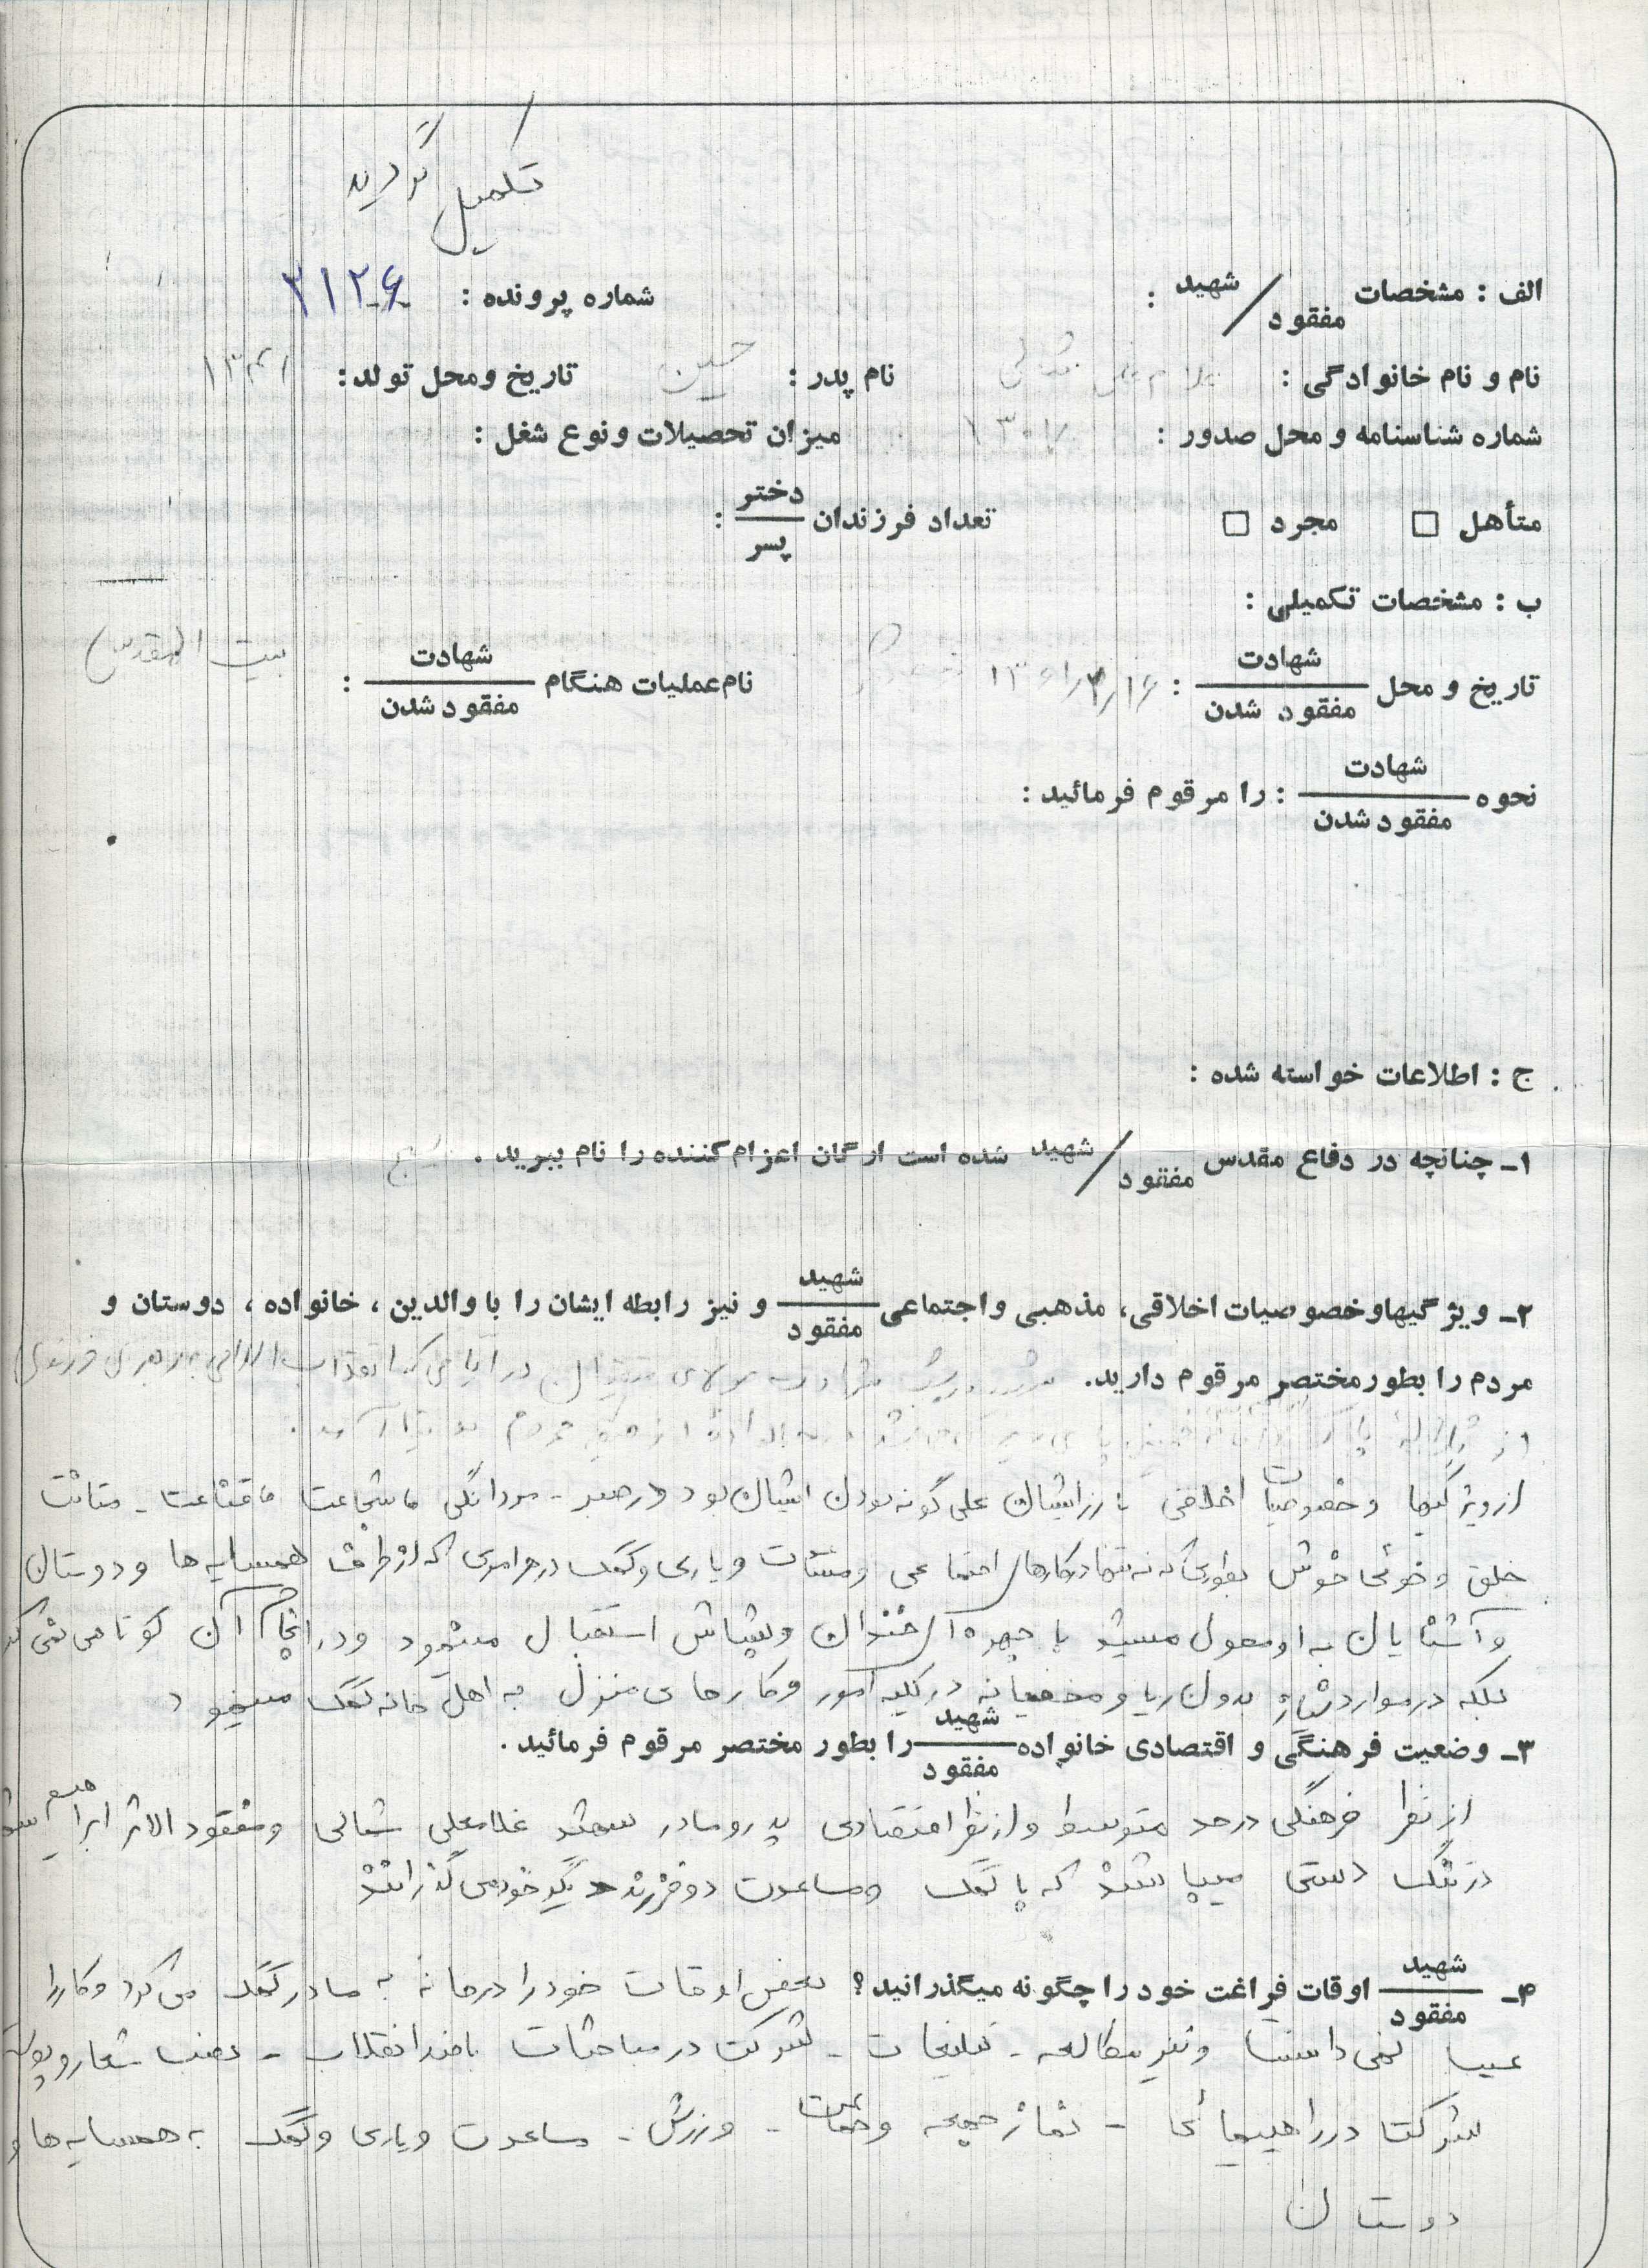 تکمیل گردید
الف : مشخصات شهید / مفقود :
شماره پرونده : ۲۱۲۶
نام و نام خانوادگی : غلامعلی شالی
نام پدر : حسین
تاریخ ومحل تولد: ۱۳۴۱
شماره شناسنامه و محل صدور :
میزان تحصیلات ونوع شغل :
متأهل □ مجرد □
تعداد فرزندان دختر / پسر :
ب : مشخصات تکمیلی :
تاریخ و محل شهادت / مفقود شدن : ۱۳۶۱/۲/۱۶
نام عملیات هنگام شهادت / مفقود شدن : بیت المقدس
نحوه شهادت / مفقود شدن : را مرقوم فرمائید :
ج : اطلاعات خواسته شده :
۱- چنانچه در دفاع مقدس شهید / مفقود شده است ارگان اعزام کننده را نام ببرید . بسیج
۲- ویژگیهاوخصوصیات اخلاقی، مذهبی واجتماعی شهید / مفقود و نیز رابطه ایشان را با والدین ، خانواده ، دوستان و
مردم را بطور مختصر مرقوم دارید. در ایامی که انقلاب اسلامی به رهبری فرزندی
از
ازویژگیها و خصوصیات اخلاقی بارز ایشان علی گونه بودن ایشان بود در صبر - مردانگی شجاعت قناعت - متانت
خلق و خوئی خوش بطوری که نه تنها در کارهای اجتماعی و یاری و کمک در هر امری که از طرف همسایه ها و دوستان
و آشنایان به او محول میشد با چهره ای خندان و بشاش استقبال مینمود و در انجام آن کوتاهی نمی کرد
بلکه در موارد بدون ریا و مخفیانه در کلیه امور و کارهای منزل به اهل خانه کمک مینمود
۳- وضعیت فرهنگی و اقتصادی خانواده شهید / مفقود را بطور مختصر مرقوم فرمائید .
از نظر فرهنگی در حد متوسط و از نظر اقتصادی پدر و مادر شهید غلامعلی شالی و مفقود الاثر ابراهیم
در تنگ دستی میباشند که با کمک و مساعدت دو فرزند دیگر خود می گذرانند
۴- شهید / مفقود اوقات فراغت خود را چگونه میگذرانید؟ بعضی اوقات خود را در خانه به مادر کمک می کرد و کار را
عیب نمی دانست و نیز مطالعه - تبلیغات - شرکت در مباحثات با ضد انقلاب - نصب شعار و پوستر
شرکت در راهپیمائی - نماز جمعه و جماعت - ورزش - مساعدت و یاری و کمک به همسایه ها و
دوستان